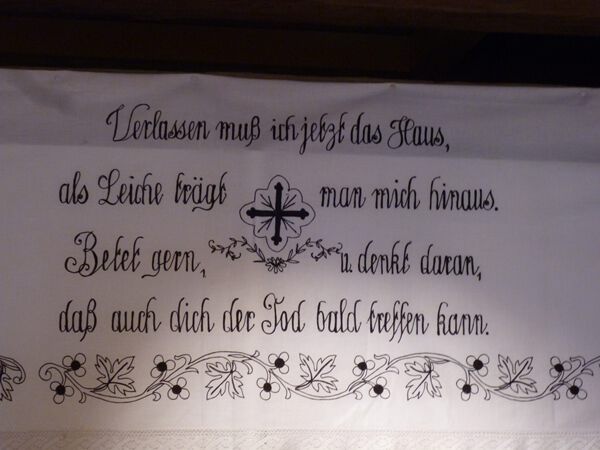 Verlassen muß ich jetzt das Haus,
als Leiche trägt man mich hinaus.
Betet gern, u. denkt daran,
daß auch dich der Tod bald treffen kann.